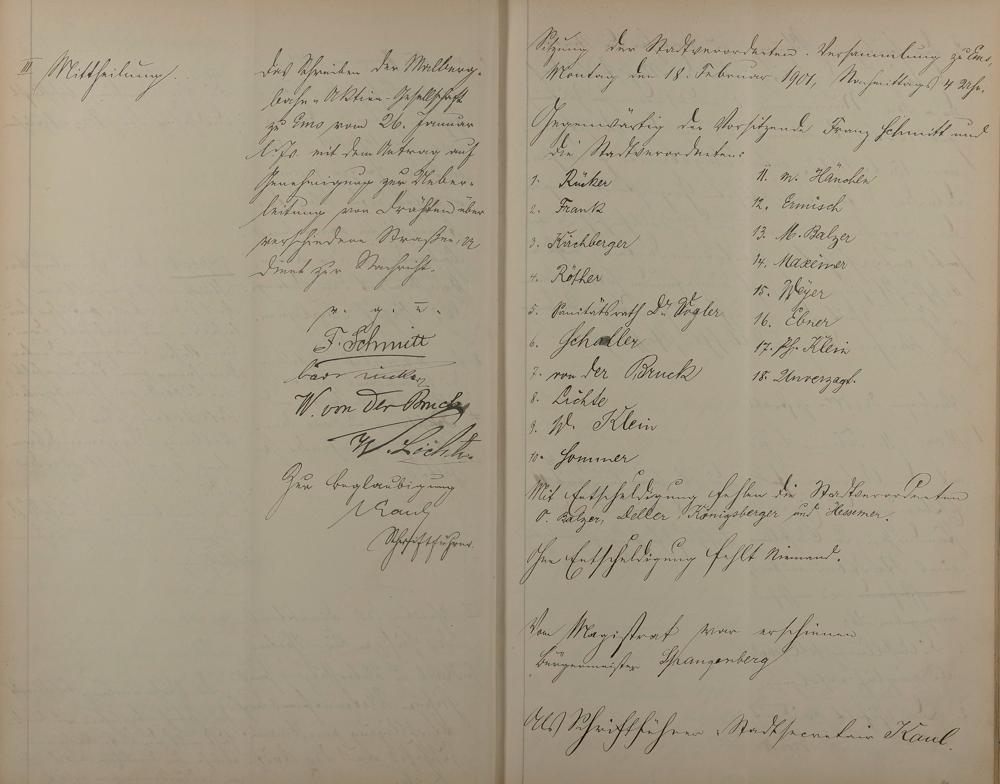 III Mittheilung.
Das Schreiben der Malberg-
bahn-Aktien-Gesellschaft
zu Ems vom 26. Januar
l. Js. mit dem Antrag auf
Genehmigung zur Ueber-
leitung von Drähten über
verschiedene Straßen, 
dient zur Nachricht.
v. g. u.
F. Schmitt
W. von der Bruck
W. Lichte
Zur Beglaubigung
Kaul
Schriftführer
Sitzung der Stadtverordneten-Versammlung zu Ems,
Montag den 18. Februar 1901, Nachmittags 4 Uhr.
Gegenwärtig der Vorsitzende Franz Schmitt und
die Stadtverordneten:
1. Rücker
2. Frank
3. Kirchberger
4. Röther
5. Sanitätsrath Dr. Vogler
6. Schaller
7. von der Bruck
8. Lichte
9. W. Klein
10. Sommer
11. M. Hänchen
12. Ermisch
13. M. Balzer
14. Maxeimer
15. Weyer
16. Ebner
17. Ph. Klein
18. Unverzagt.
Mit Entschuldigung fehlen die Stadtverordneten
O. Balzer, Deller, Königsberger und Hessemer.
Ohne Entschuldigung fehlt Niemand.
Vom Magistrat war erschienen
Bürgermeister Spangenberg
Als Schriftführer Stadtsecretair Kaul.